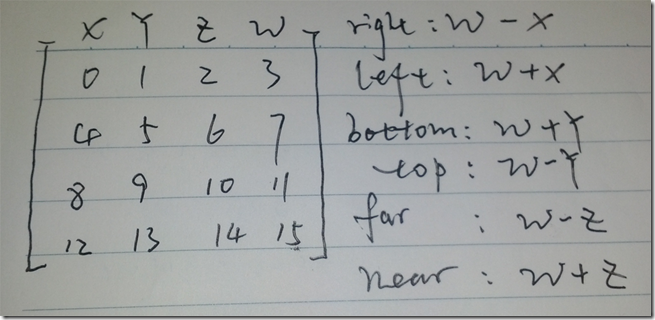 X Y Z W
0 1 2 3
4 5 6 7
8 9 10 11
12 13 14 15
right : W - X
left : W + X
bottom : W + Y
top : W - Y
far : W - Z
near : W + Z